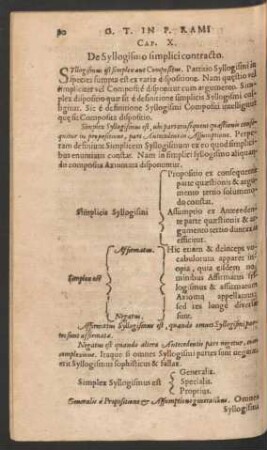 G. T. IN P. RAMI
CAP. X.
De Syllogismo simplici contracto.
Syllogismus est simplex aut Compositus. Partitio Syllogismi in
species sumpta est ex varia dispositione. Nam quæstio vel
simpliciter vel Compositè disponitur cum argumento. Sim-
plex dispositio quæ sit è definitione simplicis Syllogismi col-
ligitur. Sic è definitione Syllogismi Compositi intelligitur
quæ sit Composita dispositio.
Simplex Syllogismus est, ubi pars
in propositione, pars Antecedentis in Assumptione.
Nam in simplici syllogismo aliquan-
do composita Axiomata disponuntur.
Propositio ex consequente
parte quæstionis & argu-
mento tertio solummo-
do constat.
Simplicis Syllogismi
Assumptio ex Anteceden-
te parte quæstionis & ar-
gumento tertio
efficitur.
Affirmatus.
Hic etiam & deinceps vo-
cabulorum apparet in-
opia, quia eisdem no-
minibus Affirmatus syl-
logismus & affirmatum
Axioma appellantur,
sed res longè diversæ
sunt.
Simplex est
Negatus.
Affirmatus Syllogismus est, quando omnes Syllogismi par-
tes sunt affirmatæ.
Negatus est quando altera Antecedentis pars negatur, cum
complexione. Itaque si omnes Syllogismi partes sunt negatæ
erit Syllogismus sophisticus & fallax.
Generalis.
Simplex Syllogismus est
Specialis.
Proprius.
Generalis è Propositione & Assumptione generalibus. Omnes
Syllogismi